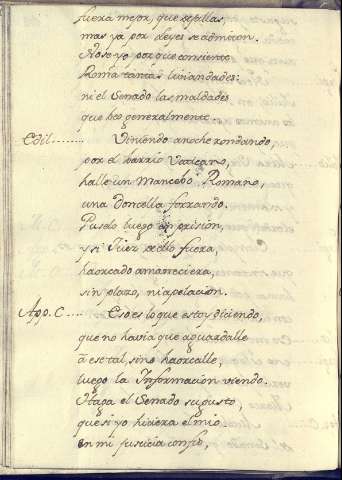 fuera mejor, que asillas,
mas ya por Leyes se admiten.
No se yo por que consiente
Roma tantas liviandades:
ni el Senado las maldades
que veo generalmente.
Edil....... Viniendo anoche rondando,
por el barrio Vaticano,
halle un Mancebo Romano,
una Doncella forzando.
Puselo luego en prision,
y si Juez de ello fuera,
haorcado amaneciera,
sin plazo, ni apelacion.
App. C..... Eso es lo que estoy diciendo,
que no havia que aguardalle
à ese tal, sino haorcalle,
luego la Informacion viendo.
Haga el Senado su gusto,
que si yo hiciera el mio
en mi justicia confio,